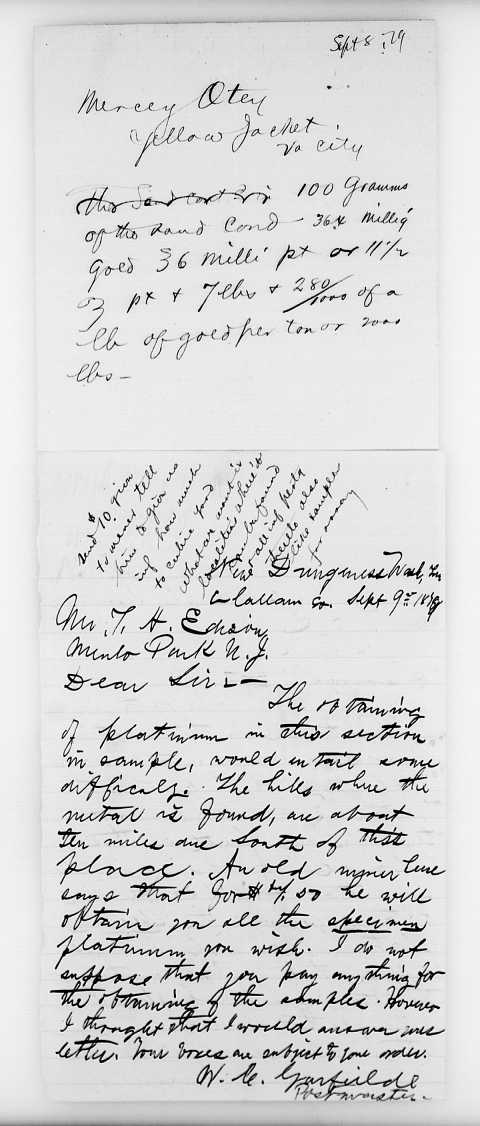 Sept 8, 79
Mercey Otey
Yellow Jacket
Va City
100 Gramms
of the sand Cond 36x Millig
Gold 36 Milli pt or 11 1/2
oz pt & 7 lbs & 280/1000 of a
lb of gold per ton or 2000
lbs—
send $10. given
to miner tell
him to give us
how much
to entire
what we want is
localities where it
can be found
also
like samples
for assay
New Dungeness Wash. Ter
Clallam Co. Sept 9th 1879
Mr. T. A. Edison
Menlo Park N. J.
Dear Sir:—
The obtaining
of platinum in this section
in sample, would entail some
difficaly. The hills where the
metal is found, are about
Ten miles due South of this
place. An old miner here
says that for he will
obtain you all the specimen
platinum you wish. I do not
suppose that you pay anything for
the obtaining of the samples. However
I thought that I would answer your
letter. Your boxes are subject to your order.
W. C. Garfielde
Postmaster.